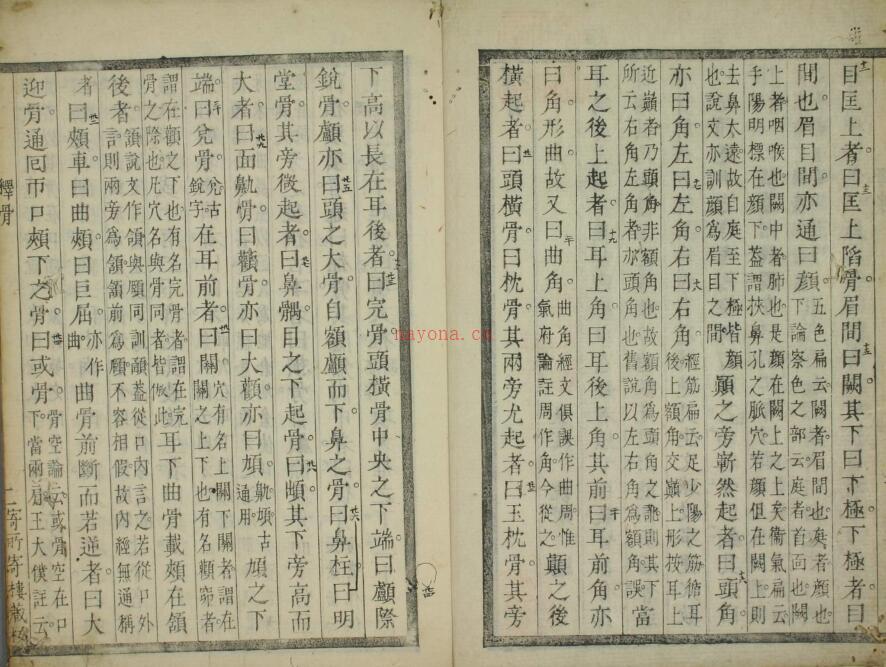 目匡上者曰匡上陷骨眉間曰闕其下曰下極下極者曰
間也眉目間亦通曰顏
五色扁云闕者眉間也庭者顏也
下論察色之部云庭者首面也闕
上者咽喉也闕中者肺也是顏在闕上之上矣衞氣扁云
手陽明標在顏下蓋謂扶鼻孔之脈穴若顏但在闕上則
去鼻太遠故自庭至下極皆顏
也說文亦訓顏爲眉目之間
顚之旁嶄然起者曰頭角
亦曰角左曰左角右曰右角
經筋扁云足少陽之筋循耳
後上額角交巔上形按耳上
近巓者乃頭角非額角也故額角爲頭角之訛則其下當
所云右角左角者亦頭角也舊說以左右角爲額角誤
耳之後上起者曰耳上角曰耳後上角其前曰耳前角亦
曰角形曲故又曰曲角
曲角經文俱誤作曲周惟
氣府論註周作角今從之
顚之後
橫起者曰頭橫骨曰枕骨其兩旁尤起者曰玉枕骨其旁
下高以長在耳後者曰完骨頭橫骨中央之下端曰顱際
銳骨顱亦曰頭之大骨自額顱而下鼻之骨曰鼻柱曰明
堂骨其旁微起者曰鼻髃目之下起骨曰䪼其下旁高而
大者曰面鼽骨曰顴骨亦曰大顴亦曰頄
鼽頄古
通用
頄之下
端曰兊骨
兊古
銳字
在耳前者曰關
穴有名上關下關者謂在
關之上下也有名顴窌者
謂在顴之下也有名完骨者謂在完
骨之際也凡穴名與骨同者皆倣此
耳下曲骨載頰在頷
後者
頷說文作頜與顄同訓顄蓋從口內言之若從口外
言則兩旁爲頷頷前爲頤不容相假故內經無通稱
者曰頰車曰曲頰曰巨屈
亦作
曲
曲骨前斷而若逆者曰大
迎骨通回帀口頰下之骨曰或骨
骨空論云或骨空在口
下當兩肩王太僕註云
釋骨
二
寄所寄樓藏
nayona.cn